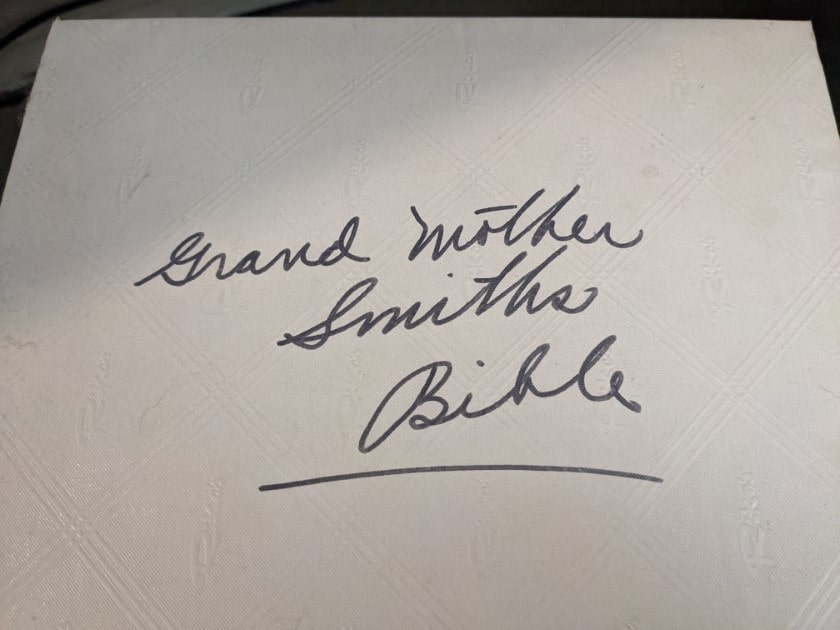 Grand Mother
Smiths
Bible